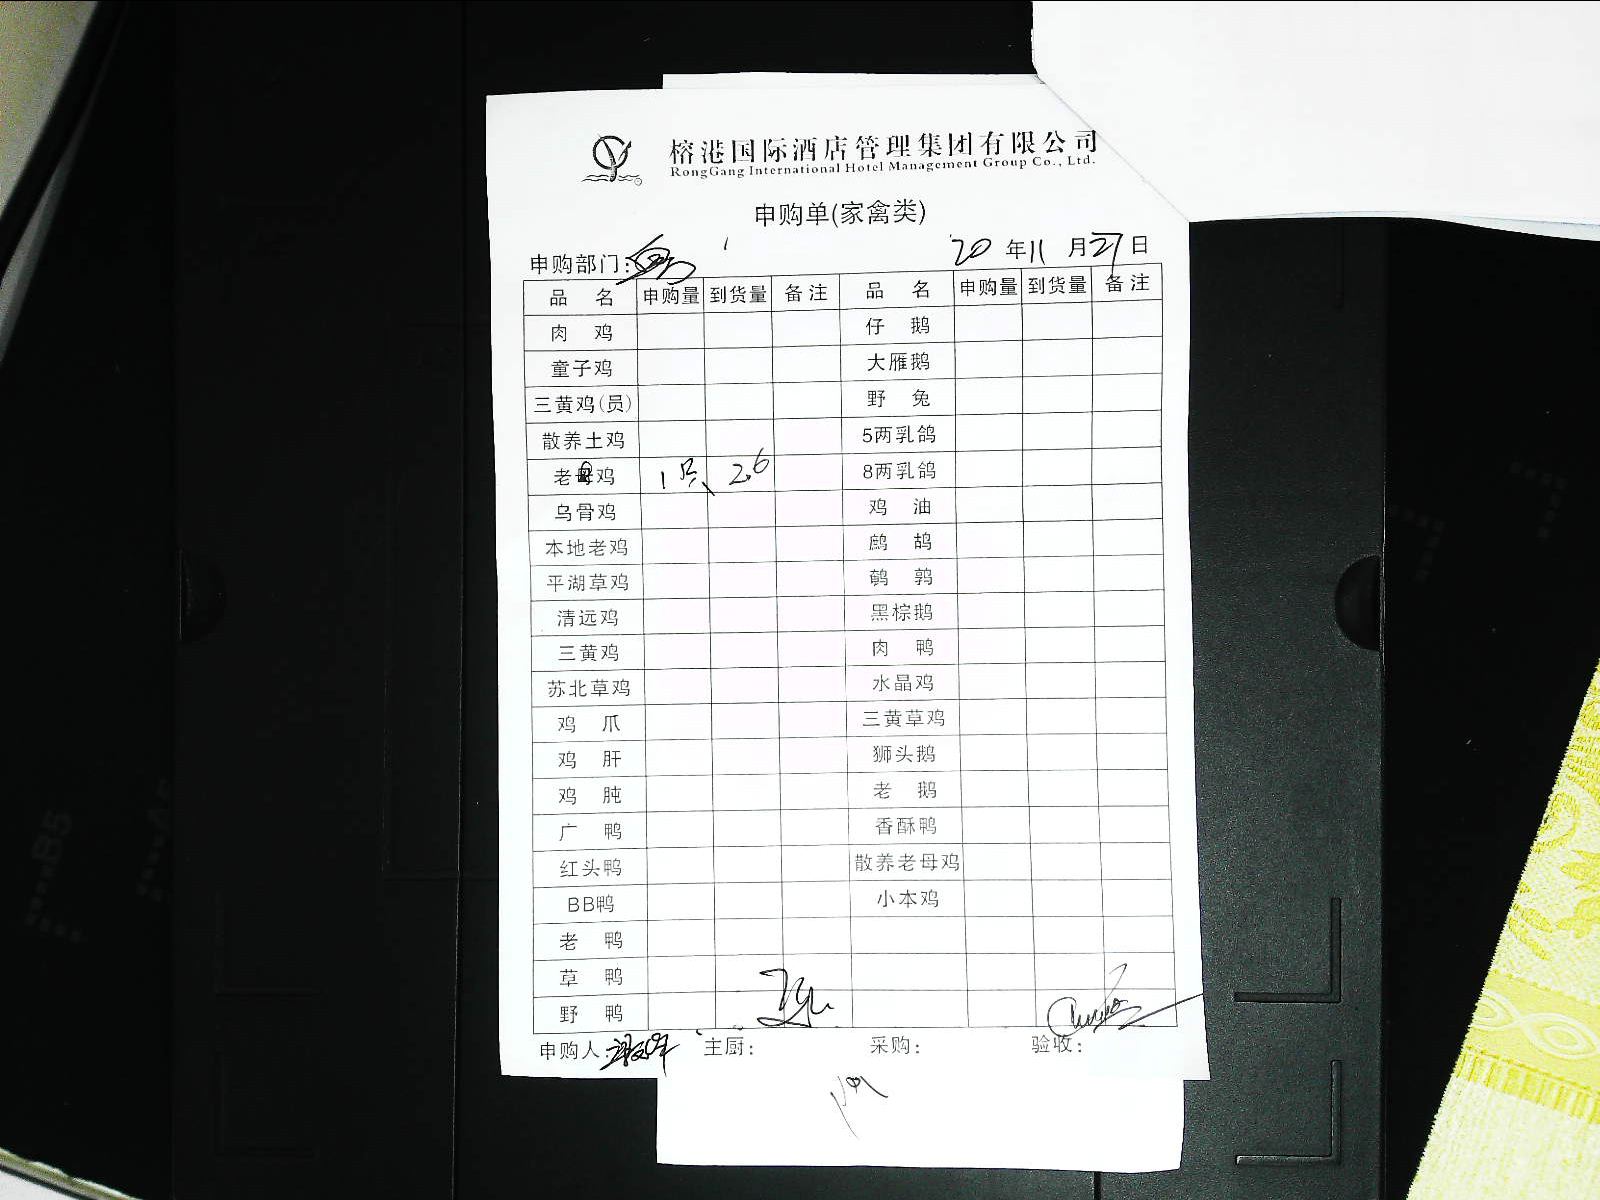 榕港国际酒店管理集团有限公司
RongGang International Hotel Management Group Co., Ltd.
申购单(家禽类)
申购部门: 20 年 11 月 27 日
品 名 申购量 到货量 备注 品 名 申购量 到货量 备注
肉 鸡 仔 鹅
童子鸡 大雁鹅
三黄鸡(员) 野 兔
散养土鸡 5两乳鸽
老母鸡 1只 2.6 8两乳鸽
乌骨鸡 鸡 油
本地老鸡 鹧 鸪
平湖草鸡 鹌 鹑
清远鸡 黑棕鹅
三黄鸡 肉 鸭
苏北草鸡 水晶鸡
鸡 爪 三黄草鸡
鸡 肝 狮头鹅
鸡 肫 老 鹅
广 鸭 香酥鸭
红头鸭 散养老母鸡
BB鸭 小本鸡
老 鸭
草 鸭
野 鸭
申购人: 主厨: 采购: 验收: